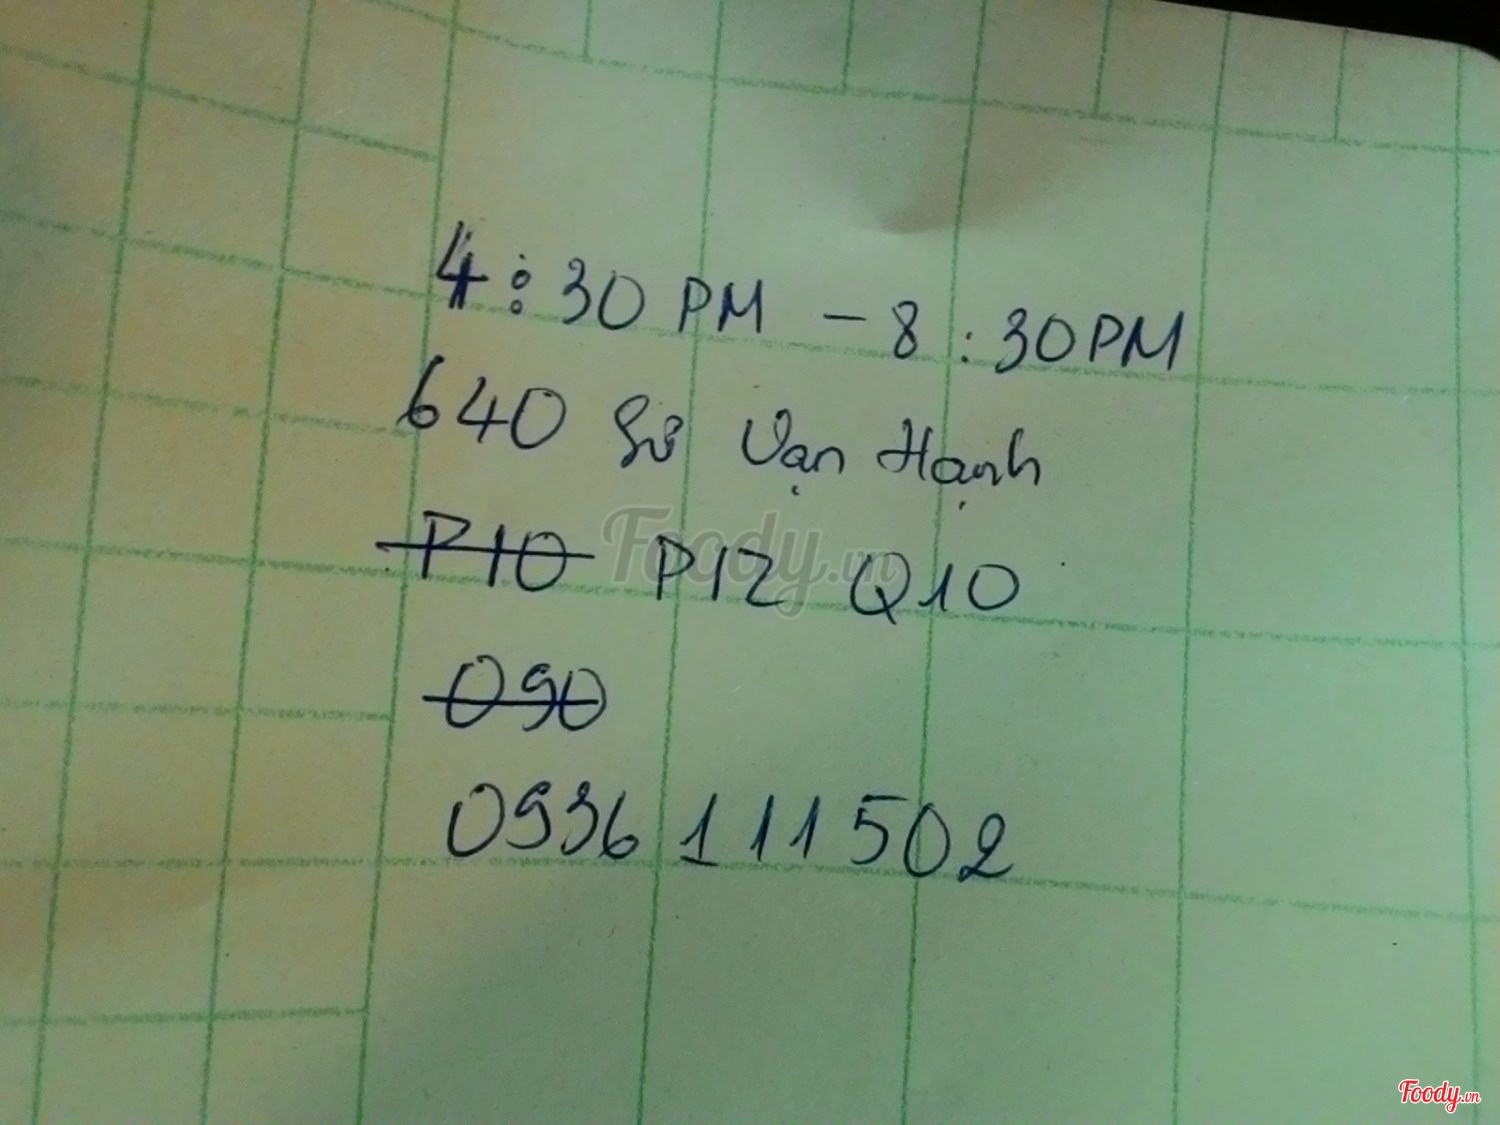 4:30 PM - 8:30PM
640 Sư Vạn Hạnh
P10 P12 Q10
090
0936 111 502
Foody.vn
Foody.vn